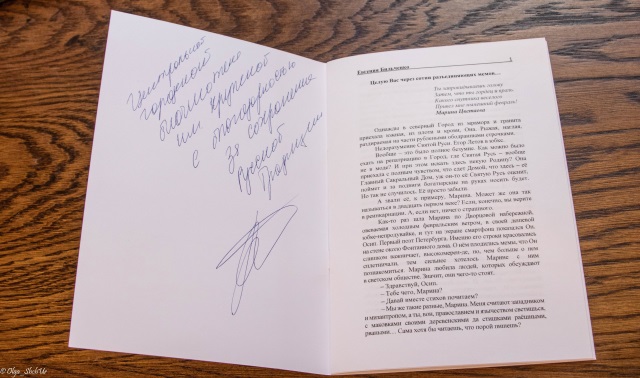 Центральной
городской
библиотеке
им Крупской
с благодарностью
за сохранение
Русской
Традиции
Евгения Бильченко
Целую Вас через сотни разъединяющих мемов…
Ты запрокидываешь голову
Затем, что ты гордец и враль.
Какого спутника веселого
Привел мне нынешний февраль!
Марина Цветаева
Однажды в северный Город из мрамора и гранита
приехала
из плоти и крови. Она. Рыжая, наглая,
раздираемая на части рублеными ободранными строчками.
Недоразумение Святой Руси. Егор Летов в юбке.
Вообще – это было полное безумие. Как можно было
ехать на репатриацию в Город, где Святая Русь – вообще
не в моде? И при этом искать здесь некую Родину? Она
приехала с полным чувством, что едет Домой, что здесь – её
Главный Сакральный Дом, уж он-то её Святую Русь оценит,
поймет и за подвиги богатырские на руках носить будет.
Но так не случилось. Её просто забыли.
А звали её, к примеру, Марина. Может же она так
называться в двадцать первом веке? Если, конечно, мы верим
в реинкарнации. А, если нет, ничего страшного.
Как-то раз шла Марина по Дворцовой набережной,
овеваемая холодным февральским ветром, в своей дешевой
юбке-непродувайке, и тут на экране смартфона показался Он.
Осип. Первый поэт Петербурга. Именно его строки красовались
на стене около Фонтанного дома. О нём плодились мемы, что Он
слишком жеманничает, высокомерен-де, но, чем больше о нем
сплетничали, тем сильнее хотелось Марине с ним
познакомиться. Марина любила людей, которых обсуждают
в светском обществе. Значит, они чего-то стоят.
– Здравствуй, Осип.
– Тебе чего, Марина?
– Давай вместе стихов почитаем?
– Мы же такие разные, Марина. Меня считают западником
и мизантропом, а ты, вон, православием и язычеством светишься,
с маковками своими деревенскими да стишками раёшными,
рваными… Сама хотя бы читаешь, что порой пишешь?